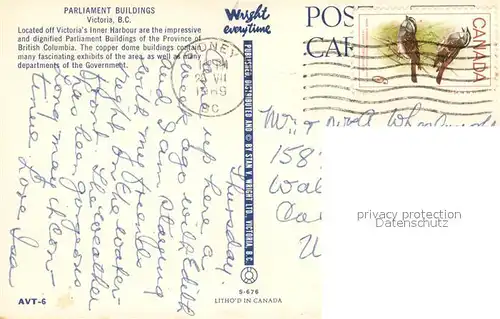 PARLIAMENT BUILDINGS
Victoria, B.C.
Located off Victoria's Inner Harbour are the impressive
and dignified Parliament Buildings of the Province of
British Columbia. The copper dome buildings contain
many fascinating exhibits of the area, as well as many
departments of the Government.
Wright
everytime
POST
CAR
CANADA
6
DNEY
VII
BC
Thursday.
Came up here a
week ago with Edith
and I am staying
with me friends
right on the water-
front. The weather
has been gorgeous
Long may it con-
tinue. Love Isa
PUBLISHED, DISTRIBUTED AND © BY STAN V. WRIGHT LTD., VICTORIA, B.C.
158
Wal
Ca
U
privacy protection
watermark
AVT-6
S-676
LITHO'D IN CANADA